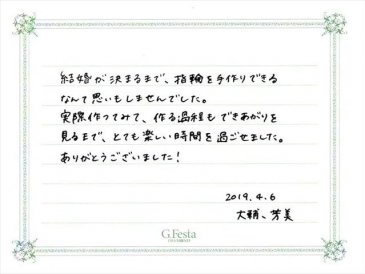 結婚が決まるまで、指輪を手作りできる
なんて思いもしませんでした。
実際作ってみて、作る過程もできあがりを
見るまで、とても楽しい時間を過ごせました。
ありがとうございました！
2019.4.6
大輔、芳美
G.Festa